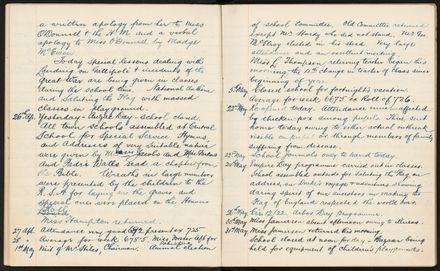 a written apology from her to Miss
O'Donnell & the H.M. and a verbal
apology to Miss O'Donnell by Madge
McEwen
Today special lessons dealing with
Landing on Gallipoli & incidents of the
Great War are being given in classes
during the school time. National Anthem
and Saluting the Flag with massed
classes in play ground.
26th Ap. Yesterday - Anzac Day - School closed.
All town schools assembled at Central
School for special Service. Hymns
and Addresses of very suitable nature
were given by
and Padre Walls read a chapter from
the Bible. Wreaths in large numbers
were presented by the children to the
R.S.A. for laying on the graves and
special ones were placed on the Honours
Board.
Miss Hampton returned.
27 Ap. Attendance very good 692 present 725
28 " Average for week 678.5. Miss left for
1st May Visit of Mr Stiles, Chairman. Annual election
of school Committee. Old Committee returned
except Mr Hardy who did not stand. Mr Geo.
McElroy elected in his stead. Very large
attendance and an excellent meeting.
Miss L. Thompson relieving teacher began this
morning - the 12th change in teacher of classes since
beginning of year.
5th May Closed school for fortnight's vacation.
Average for week 667.5 on Roll of 726.
22nd May Re-opened today. Attendance much affected
by chicken pox among pupils. Third sent
home today owing to either actual outbreak
visible on or through members of family
suffering from disease.
23rd May School journals to hand today.
24th May Empire Day programme carried out in classes.
School assembled outside for Saluting the Flag, an
address on Drake's voyage & anecdotes showing
daring spirit of our ancestors in making the
Flag of England respected the world over.
26th May Cir. 12/22. Arbor Day programme
30th May Miss Jamieson absent afternoon owing to illness.
31st May Miss Jamieson returned this morning.
School closed at noon for day - Bazaar being
held for equipment of children's playgrounds.